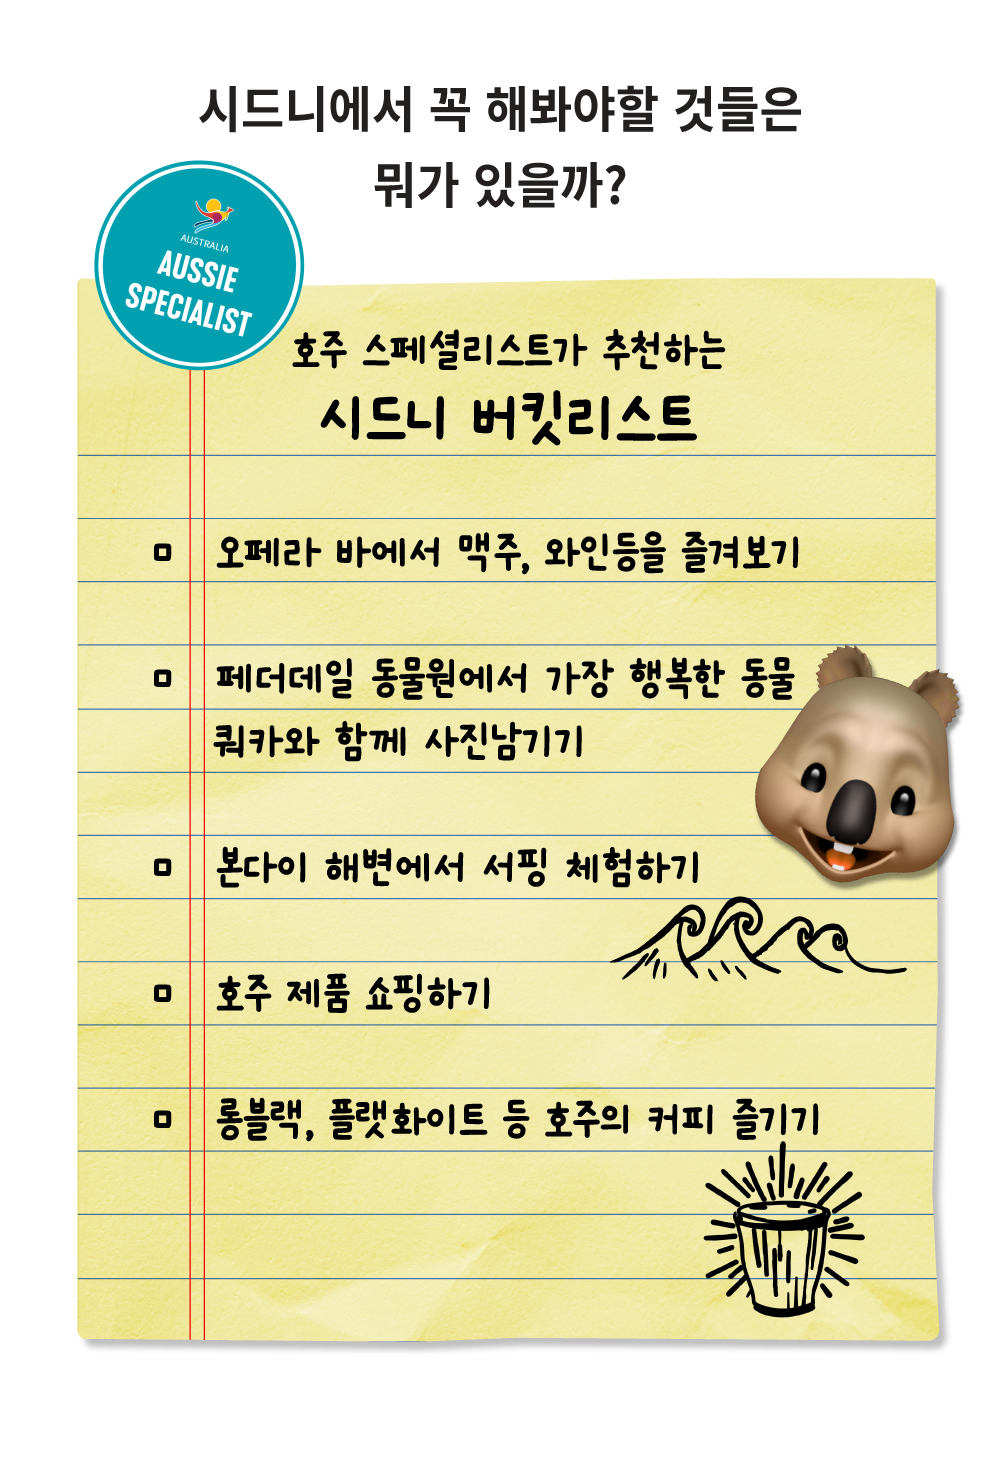 시드니에서 꼭 해봐야할 것들은
뭐가 있을까?
AUSTRALIA
AUSSIE
SPECIALIST
호주 스페셜리스트가 추천하는
시드니 버킷리스트
오페라 바에서 맥주, 와인등을 즐겨보기
페더데일 동물원에서 가장 행복한 동물
쿼카와 함께 사진남기기
본다이 해변에서 서핑 체험하기
호주 제품 쇼핑하기
롱블랙, 플랫화이트 등 호주의 커피 즐기기